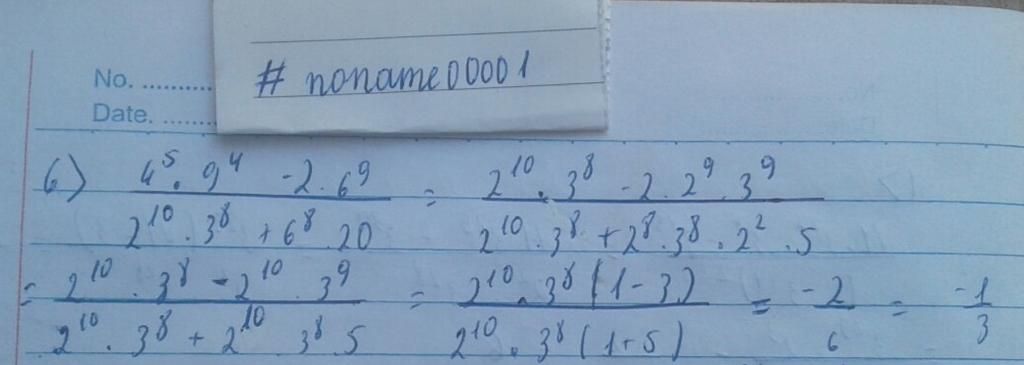 # noname00001
No. ..........
Date. .......
6) 4⁵.9⁴ -2.6⁹ / 2¹⁰.3⁸ + 6⁸.20 = 2¹⁰.3⁸ -2.2⁹.3⁹ / 2¹⁰.3⁸ + 2⁸.3⁸.2².5
= 2¹⁰.3⁸ - 2¹⁰.3⁹ / 2¹⁰.3⁸ + 2¹⁰.3⁸.5 = 2¹⁰.3⁸(1-3) / 2¹⁰.3⁸(1+5) = -2 / 6 = -1 / 3